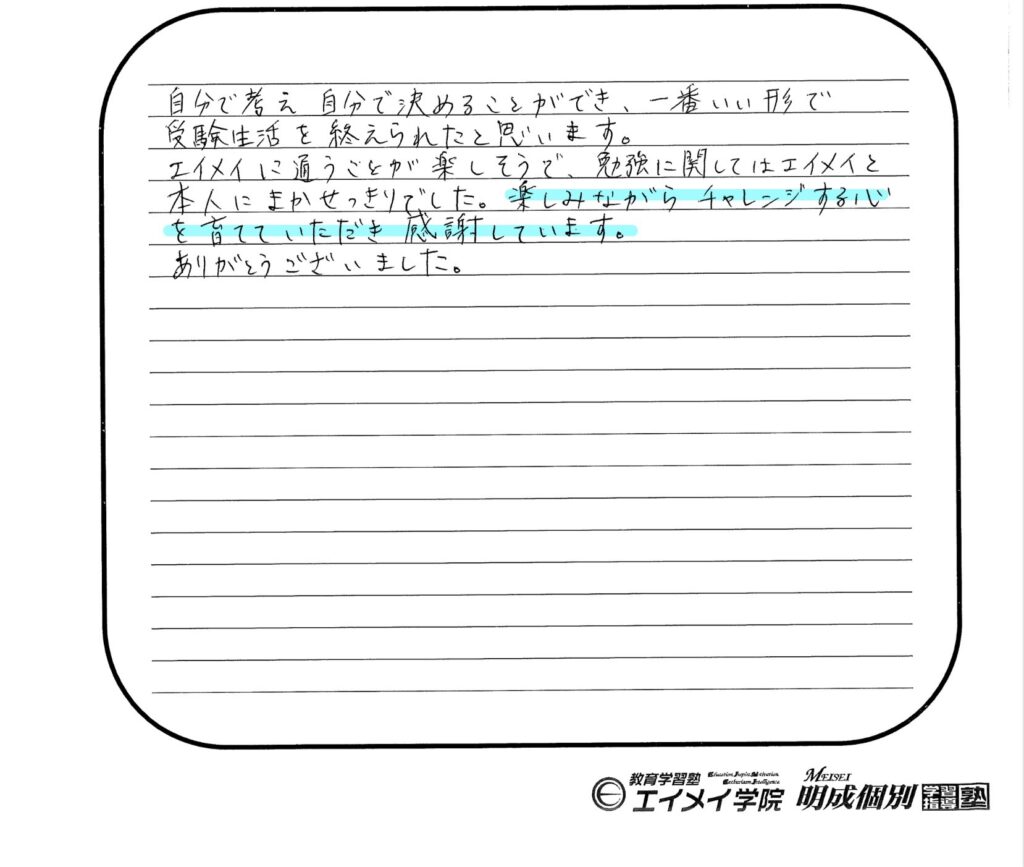 自分で考え 自分で決めることができ、一番いい形で
受験生活を終えられたと思います。
エイメイに通うことが楽しそうで、勉強に関してはエイメイと
本人にまかせっきりでした。楽しみながらチャレンジする心
を育てていただき感謝しています。
ありがとうございました。
教育学習塾
エイメイ学院
MEISEI
明成個別
学習指導塾